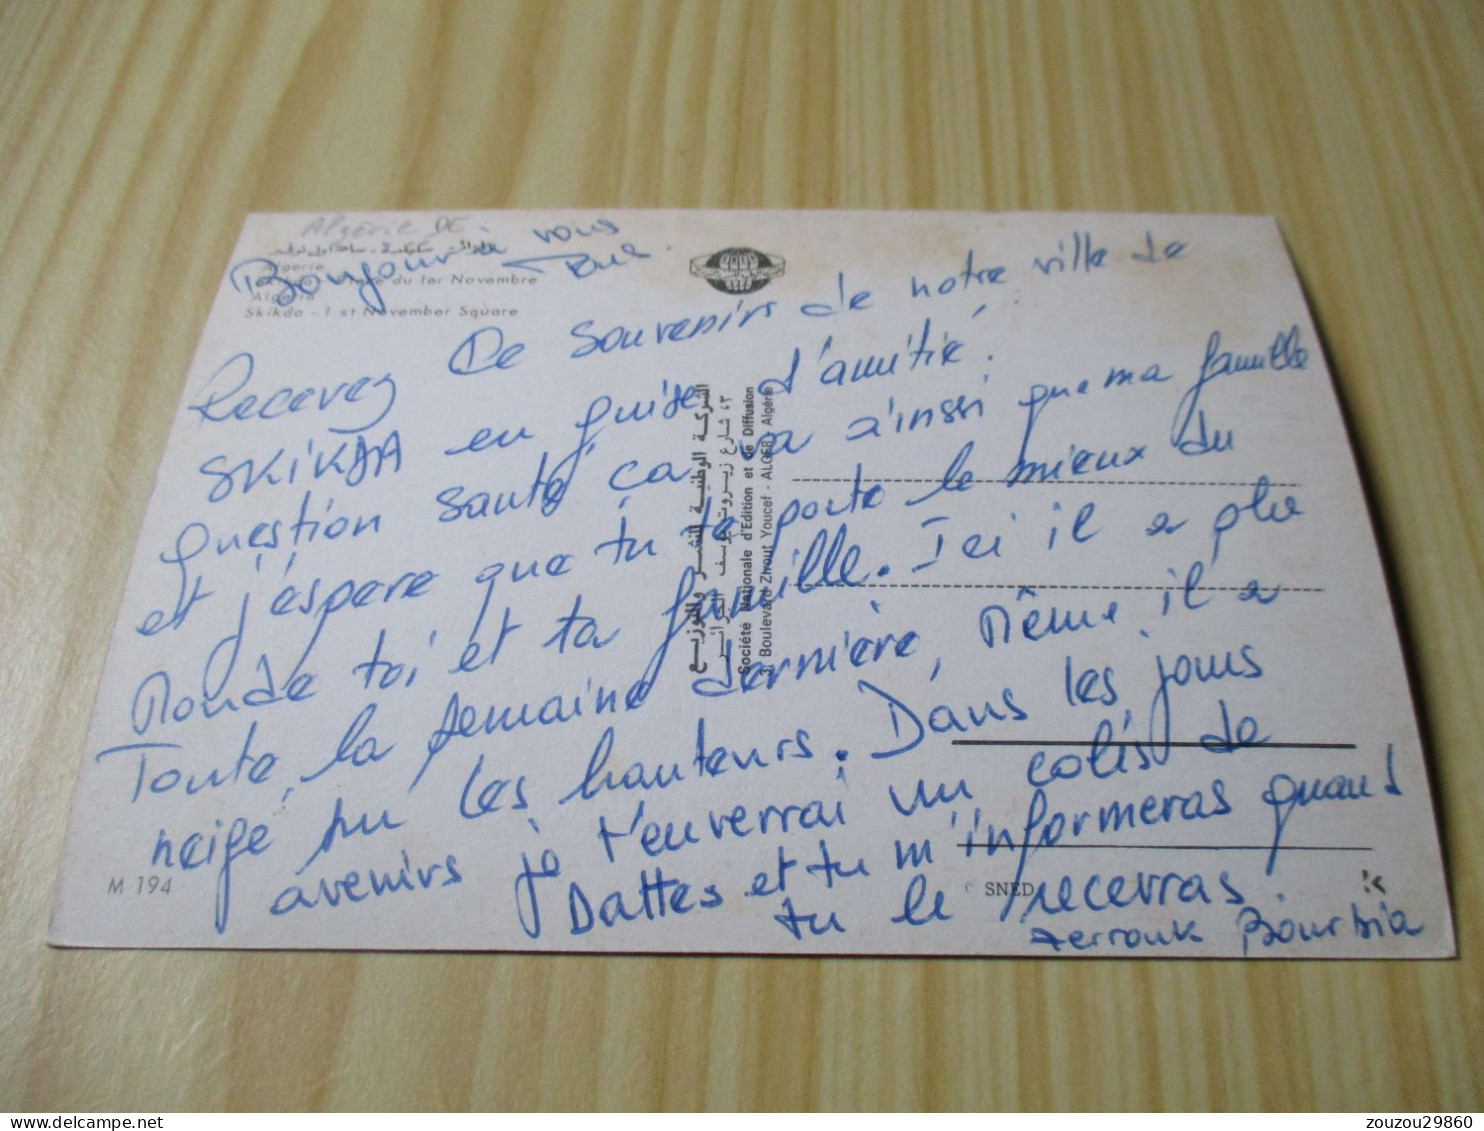 Algérie DE
Bonjour à vous
Tous.
Algérie
du 1er Novembre
Algeria
Skikda - 1 st November Square
Recevez Ce souvenirs de notre ville de
SKiKDA en guise d'amitié.
question santé ça va ainsi que ma famille
et j'espere que tu te porte le mieux du
Monde toi et ta famille. Ici il a plu
Toute la semaine dernière, Même il a
neigé su les hauteurs. Dans les jours
avenirs je t'enverrai un colis de
Dattes et tu m'informeras quand
tu le recevras.
Zerrouk Bourbia
الشركة الوطنية للنشر والتوزيع
٤٣ شارع زيروت يوسف الجزائر
Société Nationale d'Edition et de Diffusion
3, Boulevard Zirout Youcef - ALGER - Algérie
M 194
SNED
zouzou29860